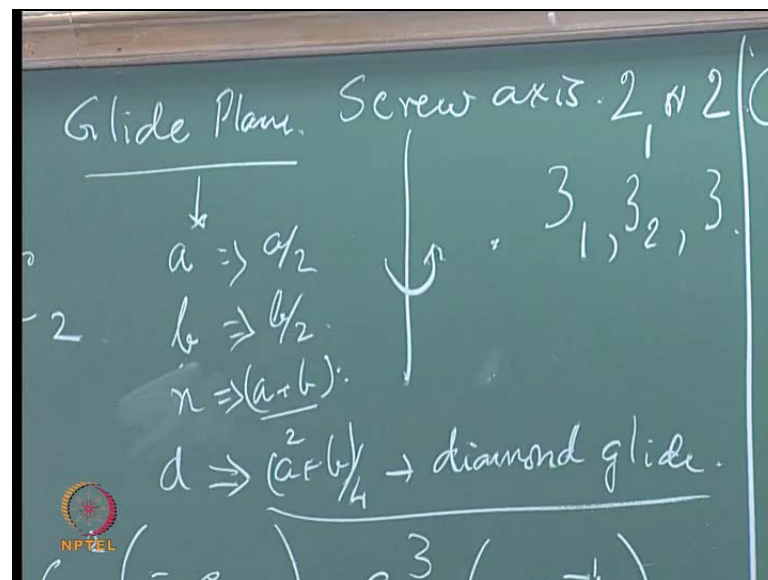 Glide Plane. Screw axis. 2₁ or 2
3₁, 3₂, 3.
a => a/2
b => b/2.
2
n => (a+b)
2
d => (a+b)/4 → diamond glide.
NPTEL
3